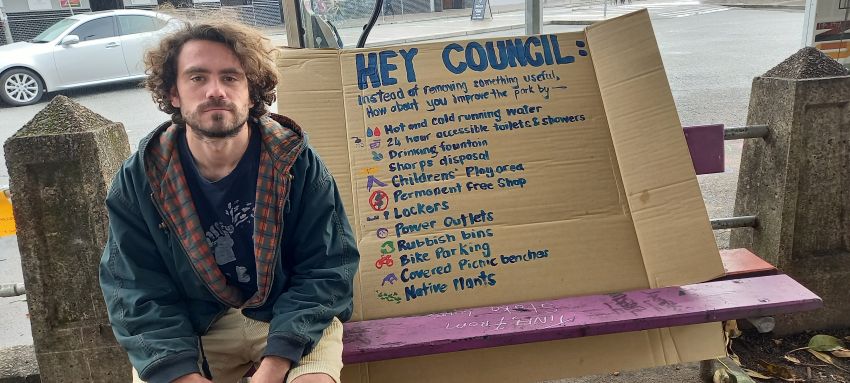 HEY COUNCIL:
Instead of removing something useful,
How about you improve the park by →
Hot and cold running water
24 hour accessible toilets & showers
Drinking fountain
Sharps disposal
Childrens' Play area
Permanent free Shop
Lockers
Power Outlets
Rubbish bins
Bike Parking
Covered Picnic benches
Native Plants